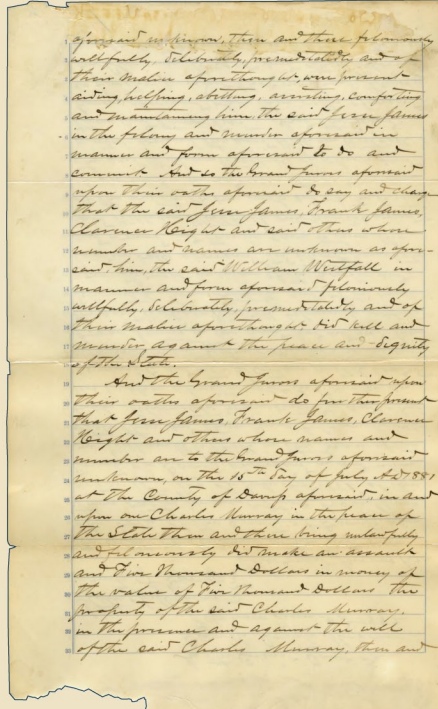 aforesaid unknown, then and there feloniously
willfully, deliberately, premeditatedly and of
their malice aforethought, were present
aiding, helping, abetting, assisting, comforting
and maintaining him the said Jesse James
in the felony and murder aforesaid in
manner and form aforesaid to do and
commit. And so the Grand Jurors aforesaid
upon their oaths aforesaid do say and charge
that the said Jesse James, Frank James,
Clarence Hight and said others whose
number and names are unknown as afore-
said, him, the said William Westfall in
manner and form aforesaid feloniously
willfully, deliberately, premeditatedly and of
their malice aforethought did kill and
murder, against the peace and dignity
of the State.
And the Grand Jurors aforesaid upon
their oaths aforesaid do further present
that Jesse James, Frank James, Clarence
Hight and others whose names and
number are to the Grand Jurors aforesaid
unknown, on the 15th day of July A.D. 1881
at the County of Daviess aforesaid, in and
upon one Charles Murray in the peace of
the State then and there being unlawfully
and feloniously did make an assault
and Five Thousand Dollars in money of
the value of Five Thousand Dollars the
property of the said Charles Murray,
in the presence and against the will
of the said Charles Murray, then and